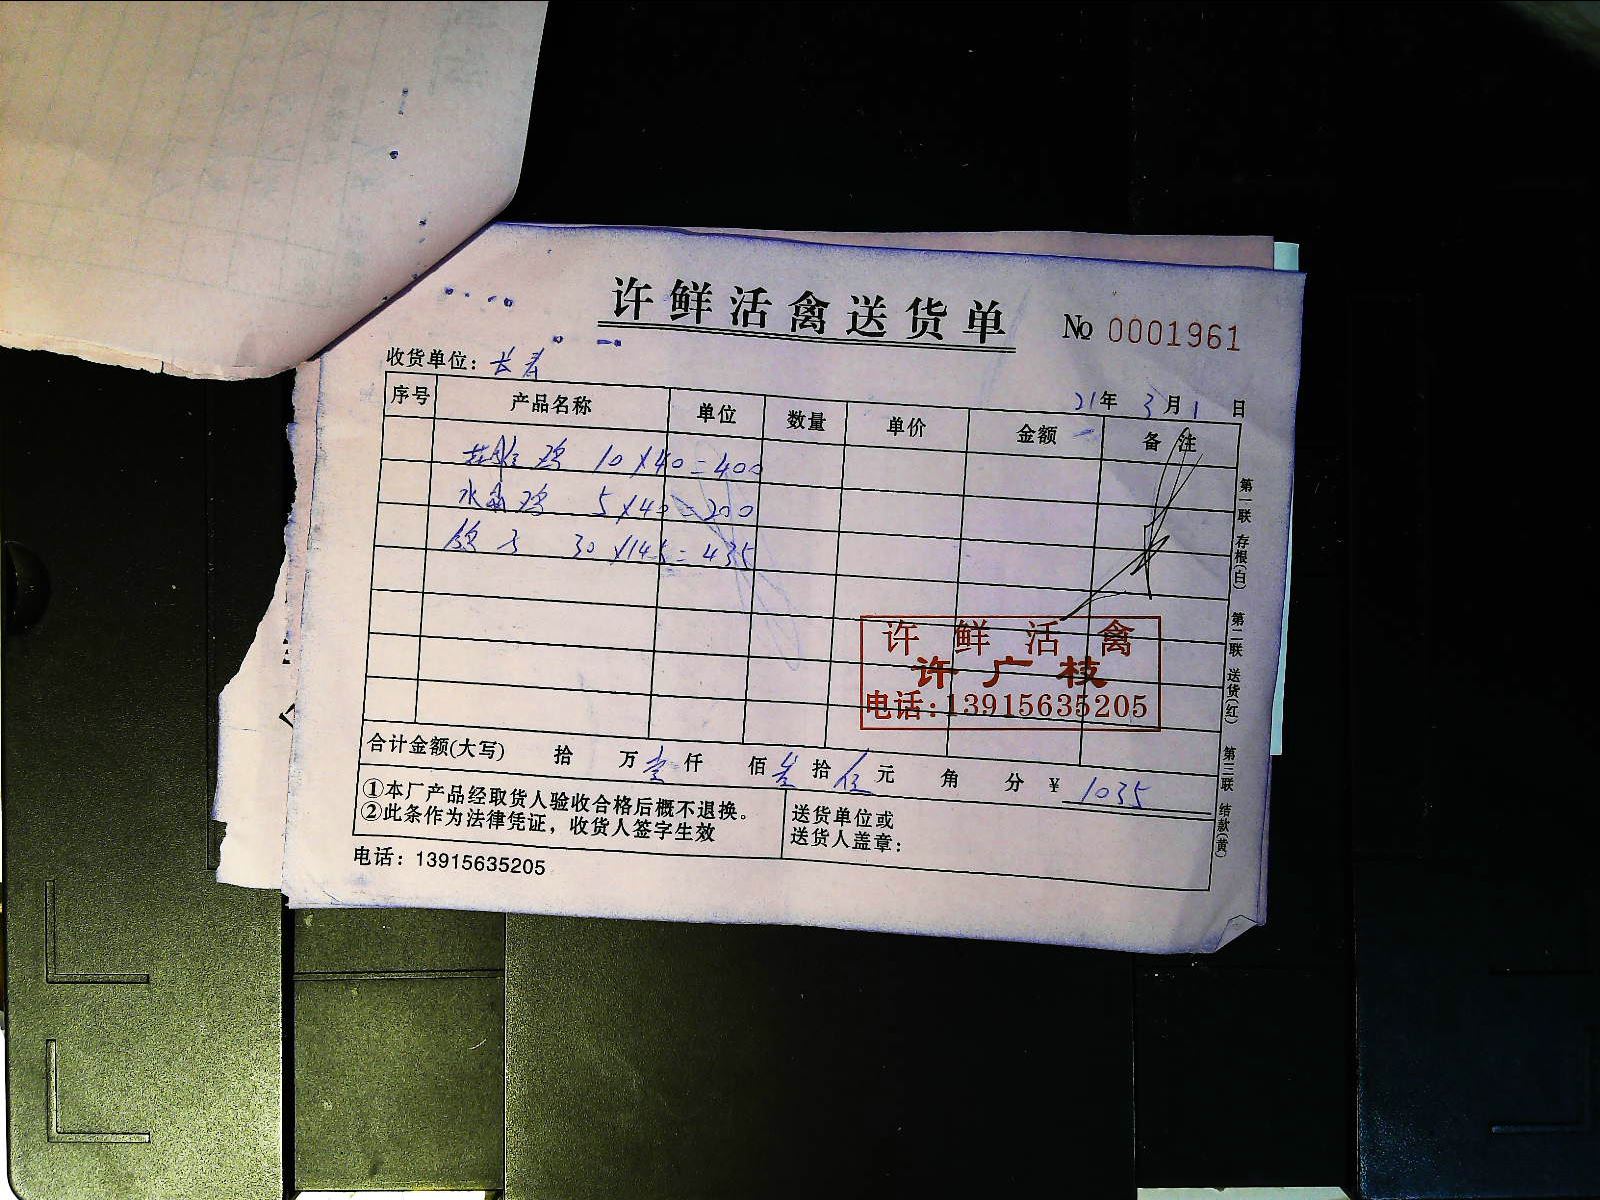 许鲜活禽送货单 № 0001961
收货单位：长寿
21年 3月1日
序号 产品名称 单位 数量 单价 金额 备注
鸡 10×40=400
水 鸡 5×40=200
30×14.5=435
许鲜活禽
许广枝
电话:13915635205
合计金额(大写) 拾 万壹仟 佰叁拾伍元 角 分 ¥ 1035
①本厂产品经取货人验收合格后概不退换。
②此条作为法律凭证，收货人签字生效
送货单位或
送货人盖章：
电话：13915635205
第一联 存根(白) 第二联 送货(红) 第三联 结款(黄)